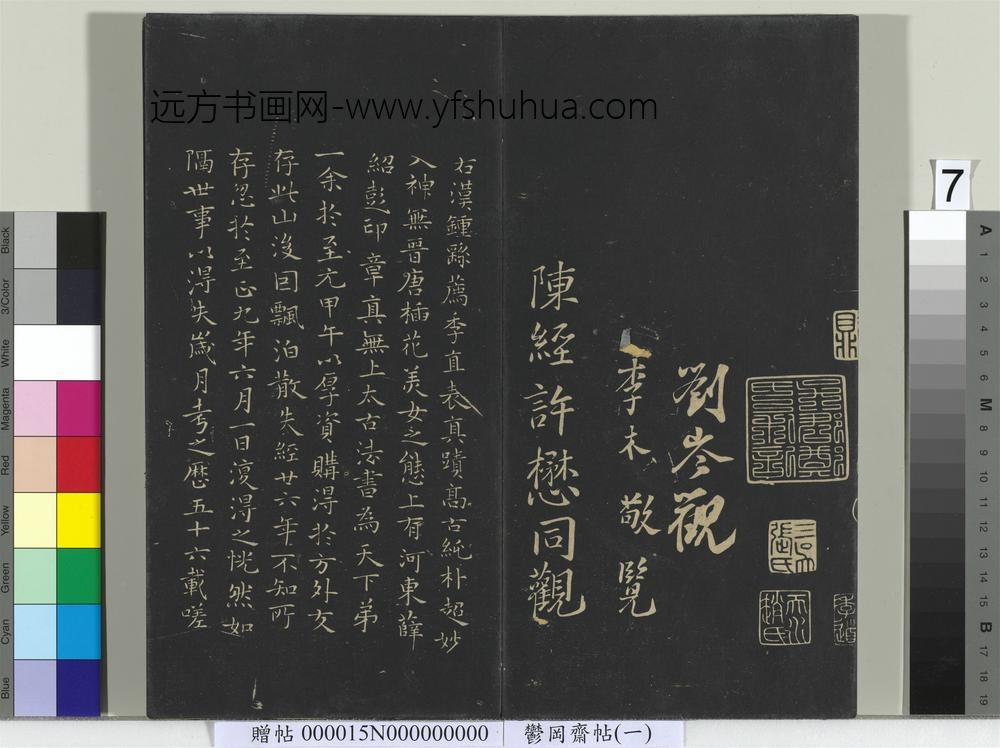 远方书画网-www.yfshuhua.com
劉岑觀
李木敬覧
陳經許懋同觀
右漢鍾繇薦季直表真蹟高古純朴超妙
入神無晋唐插花美女之態上有河東薛
紹彭印章真無上太古法書為天下弟
一余於至元甲午以厚資購得於方外友
存此山沒回飄泊散失經廿六年不知所
存忽於至正九年六月一日復得之恍然如
隔世事以得失歲月考之歷五十六載嗟
7
Black
3/Color
White
Magenta
Red
Yellow
Green
Cyan
Blue
A
1
2
3
4
5
6
M
8
9
10
11
12
13
14
15
B
17
18
19
贈帖 000015N000000000
鬱岡齋帖(一)